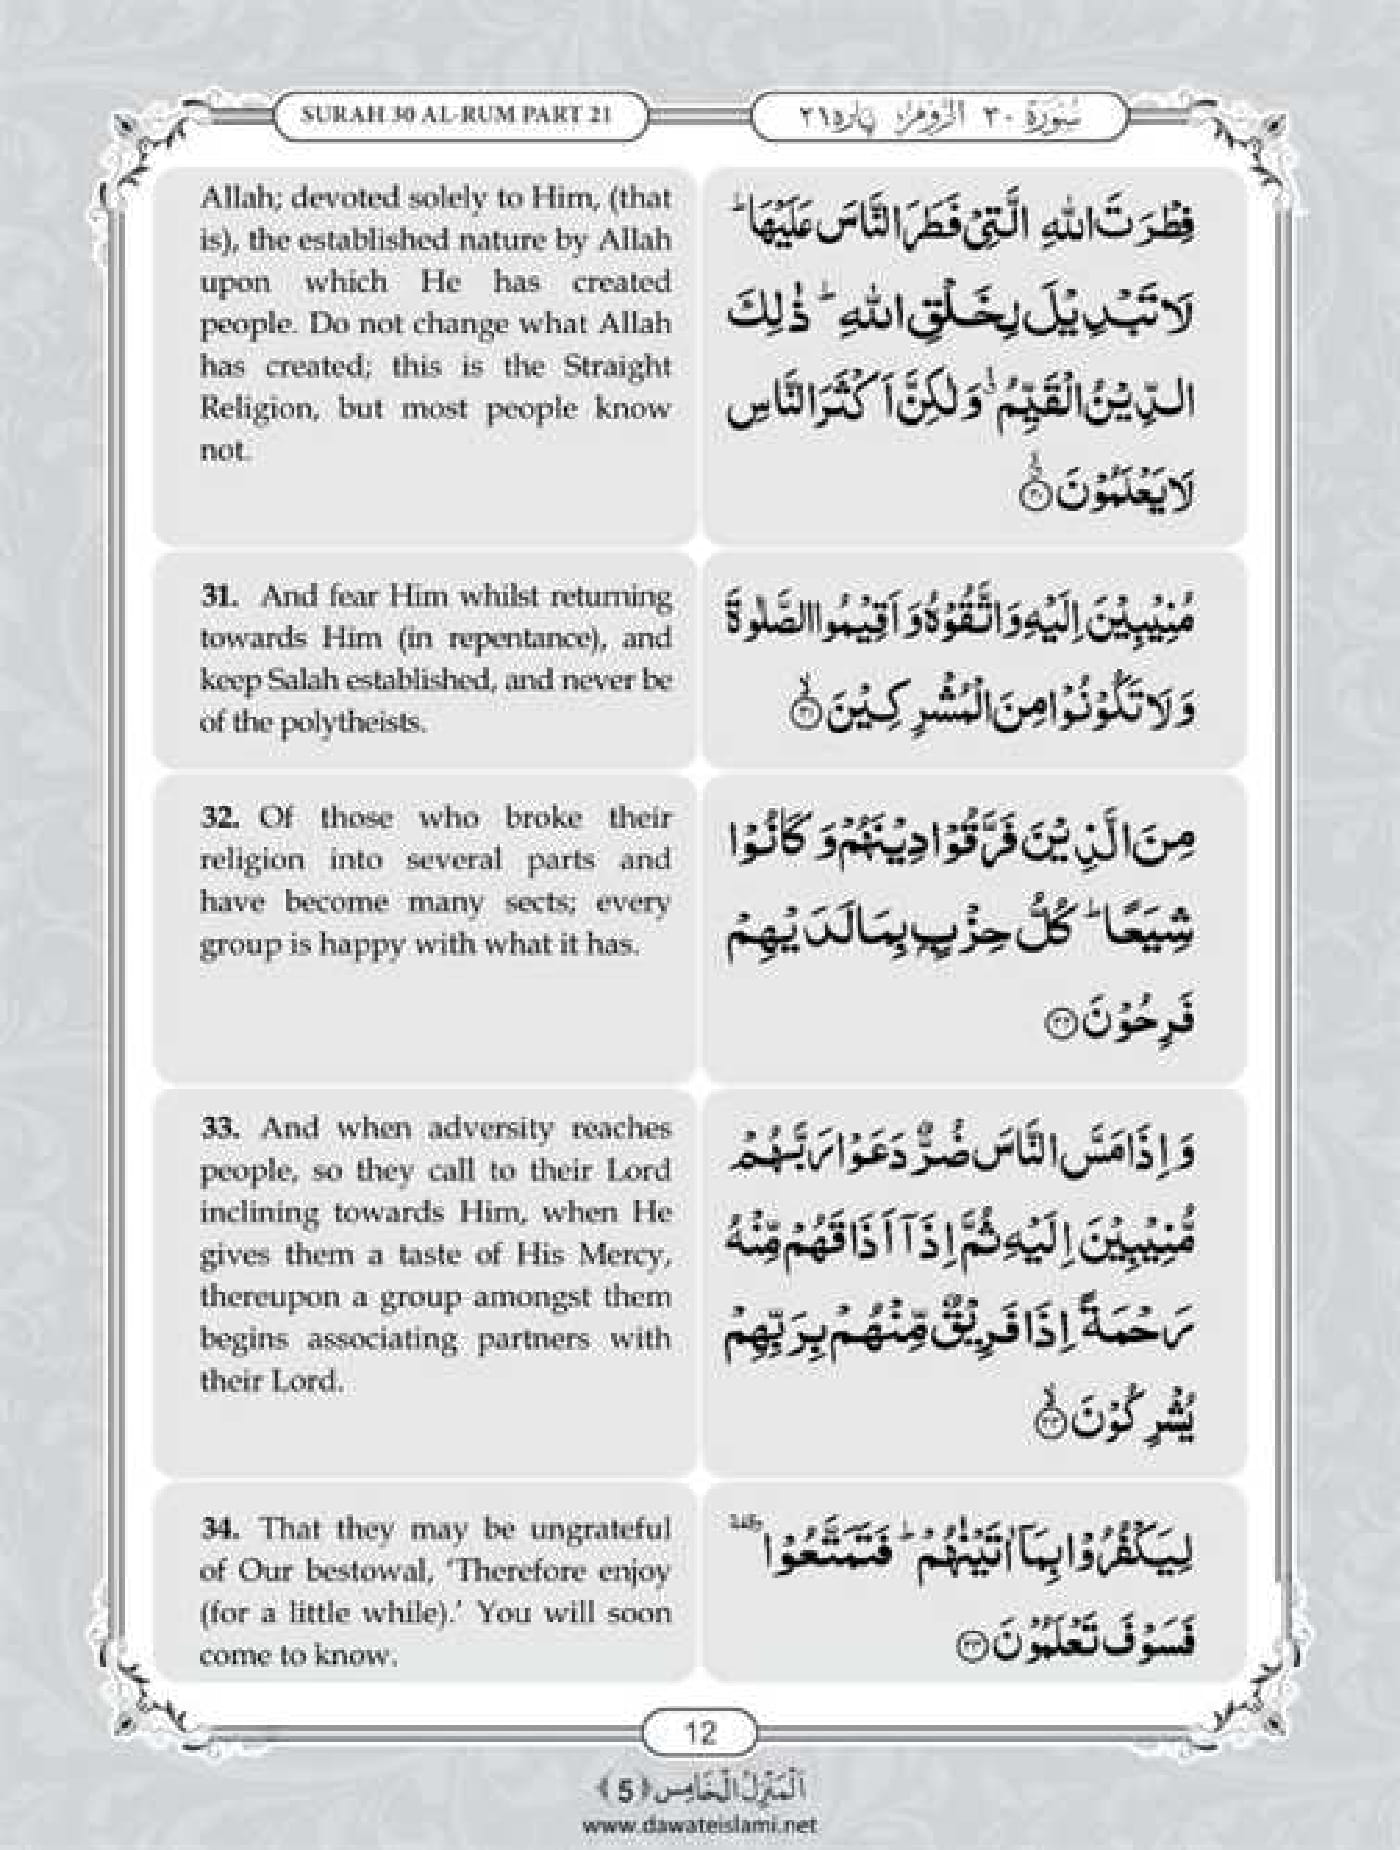 SURAH 30 AL-RUM PART 21
سُوْرَة ٣٠ اَلرُّوْمِ، پاره٢١
Allah; devoted solely to Him, (that
is), the established nature by Allah
upon which He has created
people. Do not change what Allah
has created; this is the Straight
Religion, but most people know
not.
فِطْرَتَ اللّٰهِ الَّتِیْ فَطَرَ النَّاسَ عَلَیْهَا ؕ
لَا تَبْدِیْلَ لِخَلْقِ اللّٰهِ ؕ ذٰلِكَ
الدِّیْنُ الْقَیِّمُ ۙ وَ لٰكِنَّ اَكْثَرَ النَّاسِ
لَا یَعْلَمُوْنَ ﴿۳۰﴾ۗۙ
31. And fear Him whilst returning
towards Him (in repentance), and
keep Salah established, and never be
of the polytheists.
مُنِیْبِیْنَ اِلَیْهِ وَ اتَّقُوْهُ وَ اَقِیْمُوا الصَّلٰوةَ
وَ لَا تَكُوْنُوْا مِنَ الْمُشْرِكِیْنَ ﴿۳۱﴾ۙ
32. Of those who broke their
religion into several parts and
have become many sects; every
group is happy with what it has.
مِنَ الَّذِیْنَ فَرَّقُوْا دِیْنَهُمْ وَ كَانُوْا
شِیَعًا ؕ كُلُّ حِزْبٍۭ بِمَا لَدَیْهِمْ
فَرِحُوْنَ ﴿۳۲﴾
33. And when adversity reaches
people, so they call to their Lord
inclining towards Him, when He
gives them a taste of His Mercy,
thereupon a group amongst them
begins associating partners with
their Lord.
وَ اِذَا مَسَّ النَّاسَ ضُرٌّ دَعَوْا رَبَّهُمْ
مُّنِیْبِیْنَ اِلَیْهِ ثُمَّ اِذَاۤ اَذَاقَهُمْ مِّنْهُ
رَحْمَةً اِذَا فَرِیْقٌ مِّنْهُمْ بِرَبِّهِمْ
یُشْرِكُوْنَ ﴿۳۳﴾ۙ
34. That they may be ungrateful
of Our bestowal, ‘Therefore enjoy
(for a little while).’ You will soon
come to know.
لِیَكْفُرُوْا بِمَاۤ اٰتَیْنٰهُمْ ؕ فَتَمَتَّعُوْا ۥ وقفة
فَسَوْفَ تَعْلَمُوْنَ ﴿۳۴﴾
12
اَلْمَنْزِلُ الْخَامِس ﴿5﴾
www.dawateislami.net